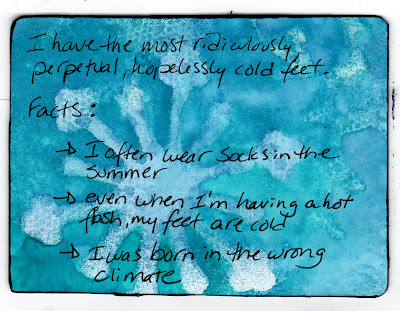 I have the most ridiculously,
perpetual, hopelessly cold feet.
Facts:
→ I often wear socks in the
summer
→ even when I'm having a hot
flash, my feet are cold
→ I was born in the wrong
climate